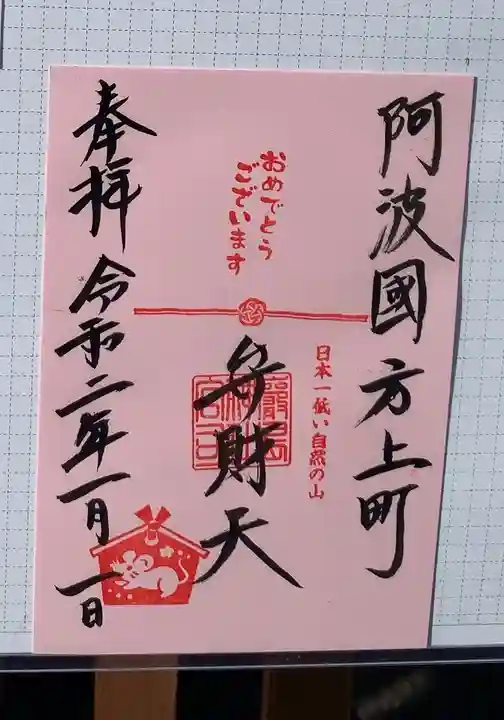 阿波國方上町
日本一低い自然の山
おめでとう
ございます
弁財天
奉拝 令和二年一月一日